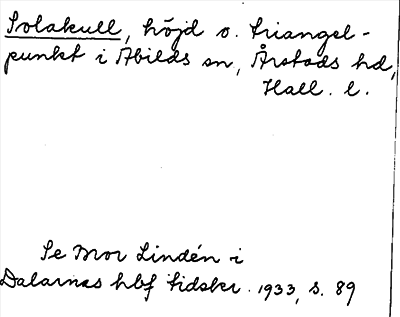 Solakull, höjd o. triangel-
punkt i Abilds sn, Årstads hd,
Hall. l.
Se Mor Lindén i
Dalarnas hbf tidskr. 1933, s. 89